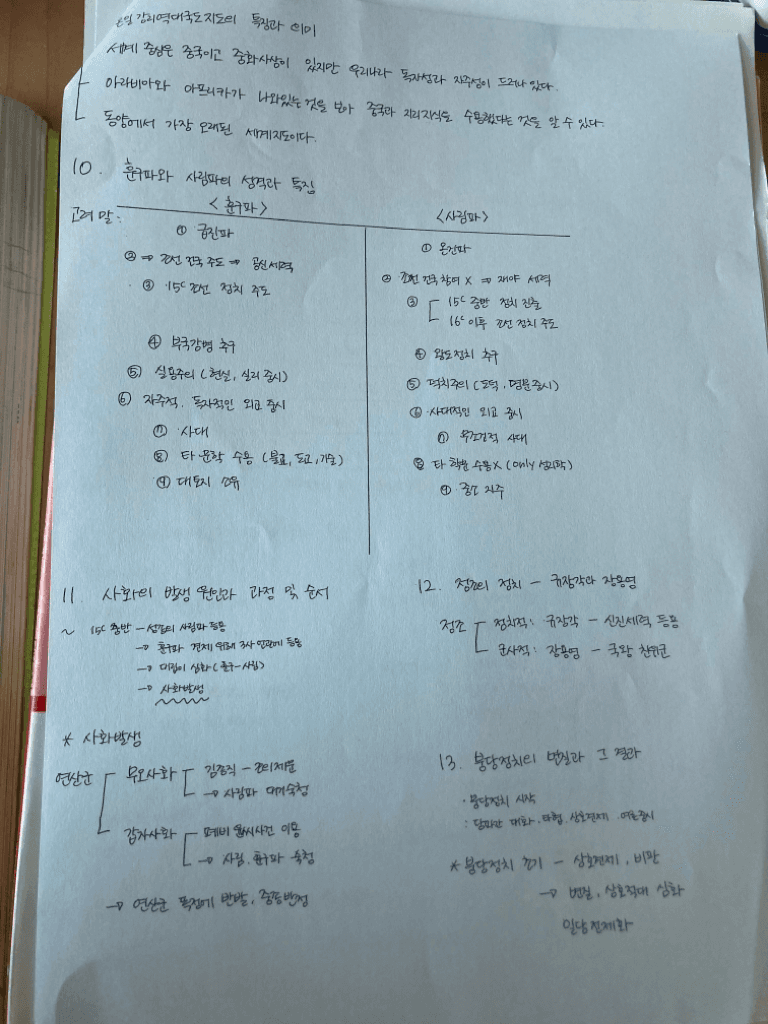 혼일강리역대국도지도의 특징과 의미
세계 중심은 중국이고 중화사상이 있지만 우리나라 독자성과 자주성이 드러나 있다.
아라비아와 아프리카가 나와있는 것을 보아 중국과 지리지식도 수용했다는 것을 알 수 있다.
동양에서 가장 오래된 세계지도이다.
10. 훈구파와 사림파의 성격과 특징
<훈구파>
고려 말:
① 급진파
② ⇒ 조선 건국 주도 ⇒ 공신 세력
③ 15C 조선 정치 주도
④ 부국강병 추구
⑤ 실용주의 (현실, 실리 중시)
⑥ 자주적, 독자적인 외교 중시
⑦ 사대
⑧ 타 문학 수용 (불교, 도교, 기술)
⑨ 대토지 소유
<사림파>
① 온건파
② 조선 건국 참여 X ⇒ 재야 세력
③ 15C 중반 정치 진출
16C 이후 조선 정치 주도
④ 왕도정치 추구
⑤ 덕치주의 (도덕, 명분 중시)
⑥ 사대적인 외교 중시
⑦ 무조건적 사대
⑧ 타 학문 수용 X (only 성리학)
⑨ 중소 지주
11. 사화의 발생 원인과 과정 및 순서
~ 15C 중반 - 성종의 사림파 등용
→ 훈구파 견제 위해 3사 언관에 등용
→ 대립이 심화 (훈구-사림)
→ 사화발생
* 사화발생
연산군 무오사화 김종직 - 조의제문
→ 사림파 대거숙청
갑자사화 폐비 윤씨사건 이용
→ 사림, 훈구파 숙청
→ 연산군 폭정에 반발, 중종반정
12. 정조의 정치 - 규장각과 장용영
정조 정치적: 규장각 - 신진세력 등용
군사적: 장용영 - 국왕 친위군
13. 붕당정치의 변질과 그 결과
· 붕당정치 시작
: 당파간 대화, 타협, 상호견제, 여론중시
* 붕당정치 초기 - 상호견제, 비판
→ 변질, 상호적대 심화
일당전제화